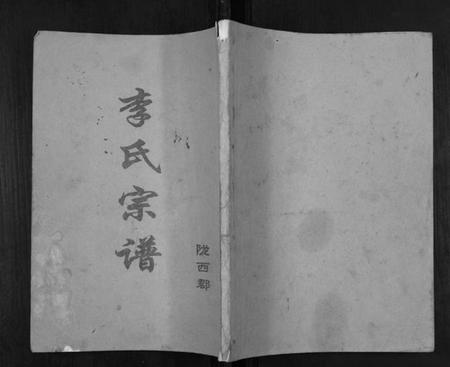 李氏宗谱
陇西郡